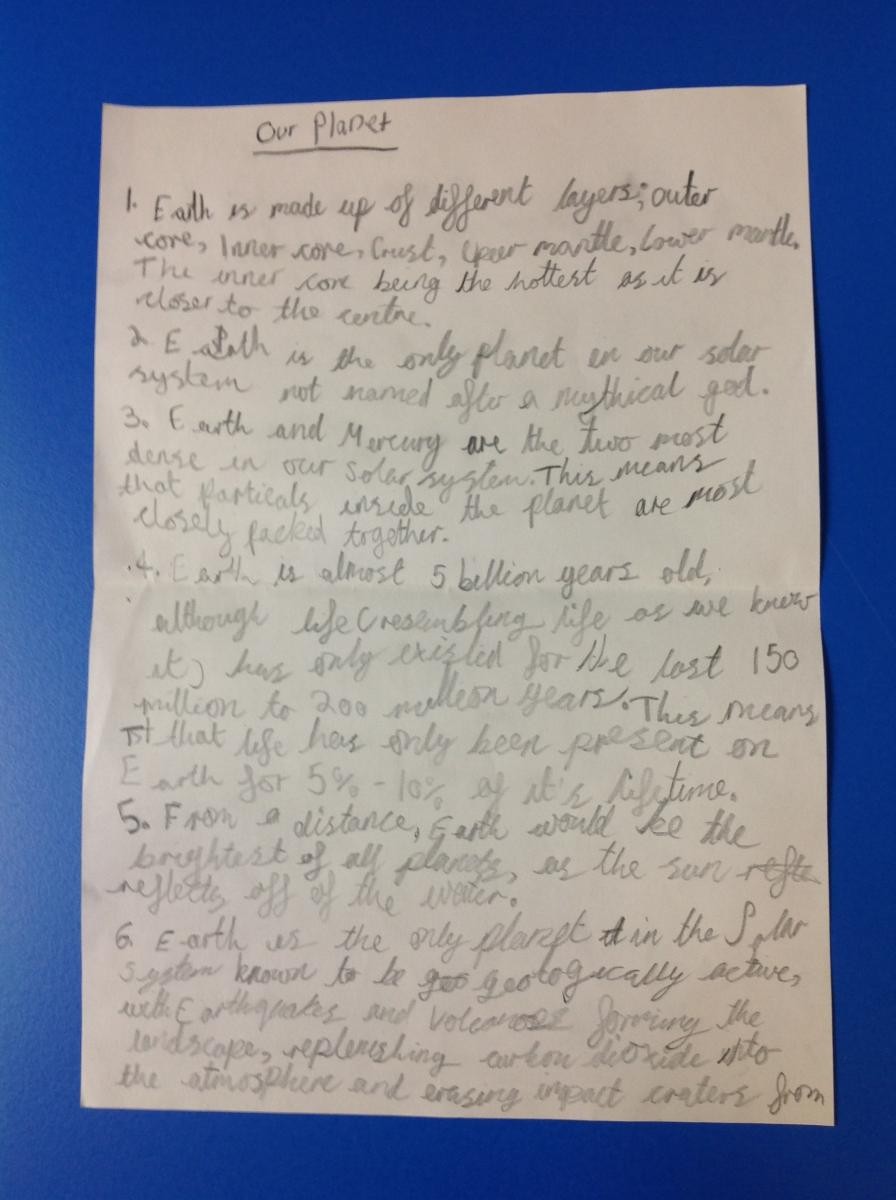 Our Planet
1. Earth is made up of different layers; outer
core, Inner core, Crust, Upeer mantle, Lower mantle.
The inner core being the hottest as it is
closer to the centre.
2. Earth is the only planet in our solar
system not named after a mythical god.
3. Earth and Mercury are the two most
dense in our solar system. This means
that particals inside the planet are most
closely packed together.
4. Earth is almost 5 billion years old,
although life (resembling life as we know
it) has only existed for the last 150
million to 200 million years. This means
that life has only been present on
Earth for 5% - 10% of it's lifetime.
5. From a distance, Earth would be the
brightest of all planets, as the sun
reflects off of the water.
6. Earth is the only planet in the Solar
System known to be geologically active,
with Earthquakes and Volcanoes forming the
landscape, replenishing carbon dioxide into
the atmosphere and erasing impact craters from